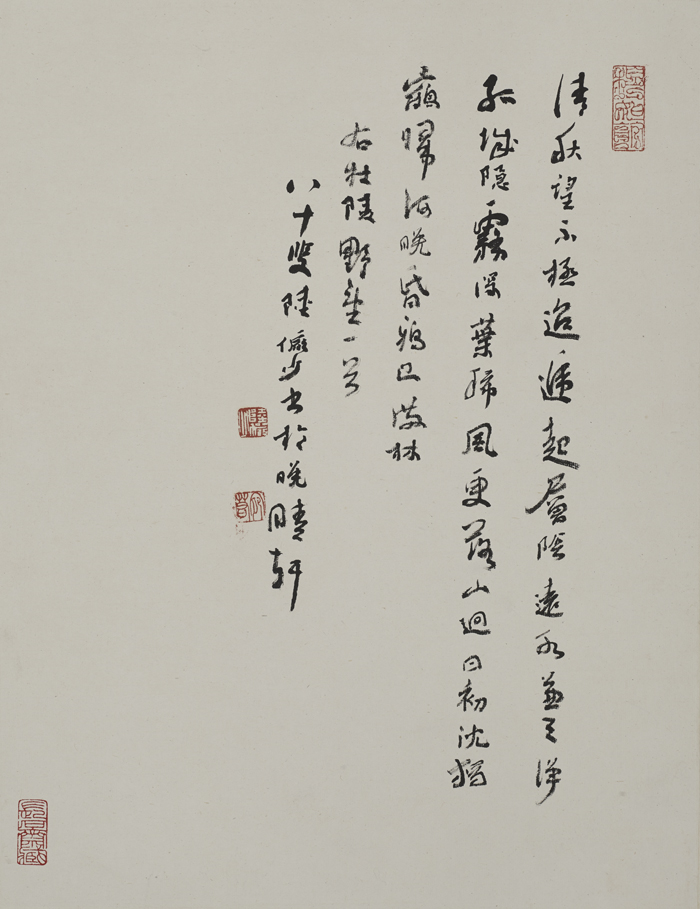 清秋望不極迢遞起層陰遠水兼天淨
孤城隐霧深葉稀風更落山迥日初沈獨
鶴歸何晚昏鴉已滿林
右杜陵野望一首
八十叟陸儼少書於晚晴軒